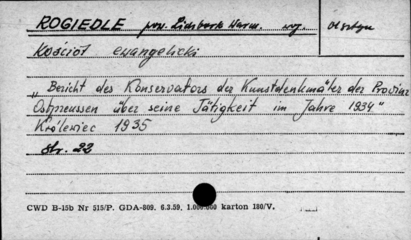 ROGIEDLE pow. Lidzbark Warm. woj. Olsztyn
Kościół ewangelicki
"Bericht des Konservators der Kunstdenkmäler der Provinz
Ostpreussen über seine Tätigkeit im Jahre 1934"
Królewiec 1935
Str. 22
CWD B-15b Nr 515/P. GDA-809. 6.3.59. 1.000.000 karton 180/V.